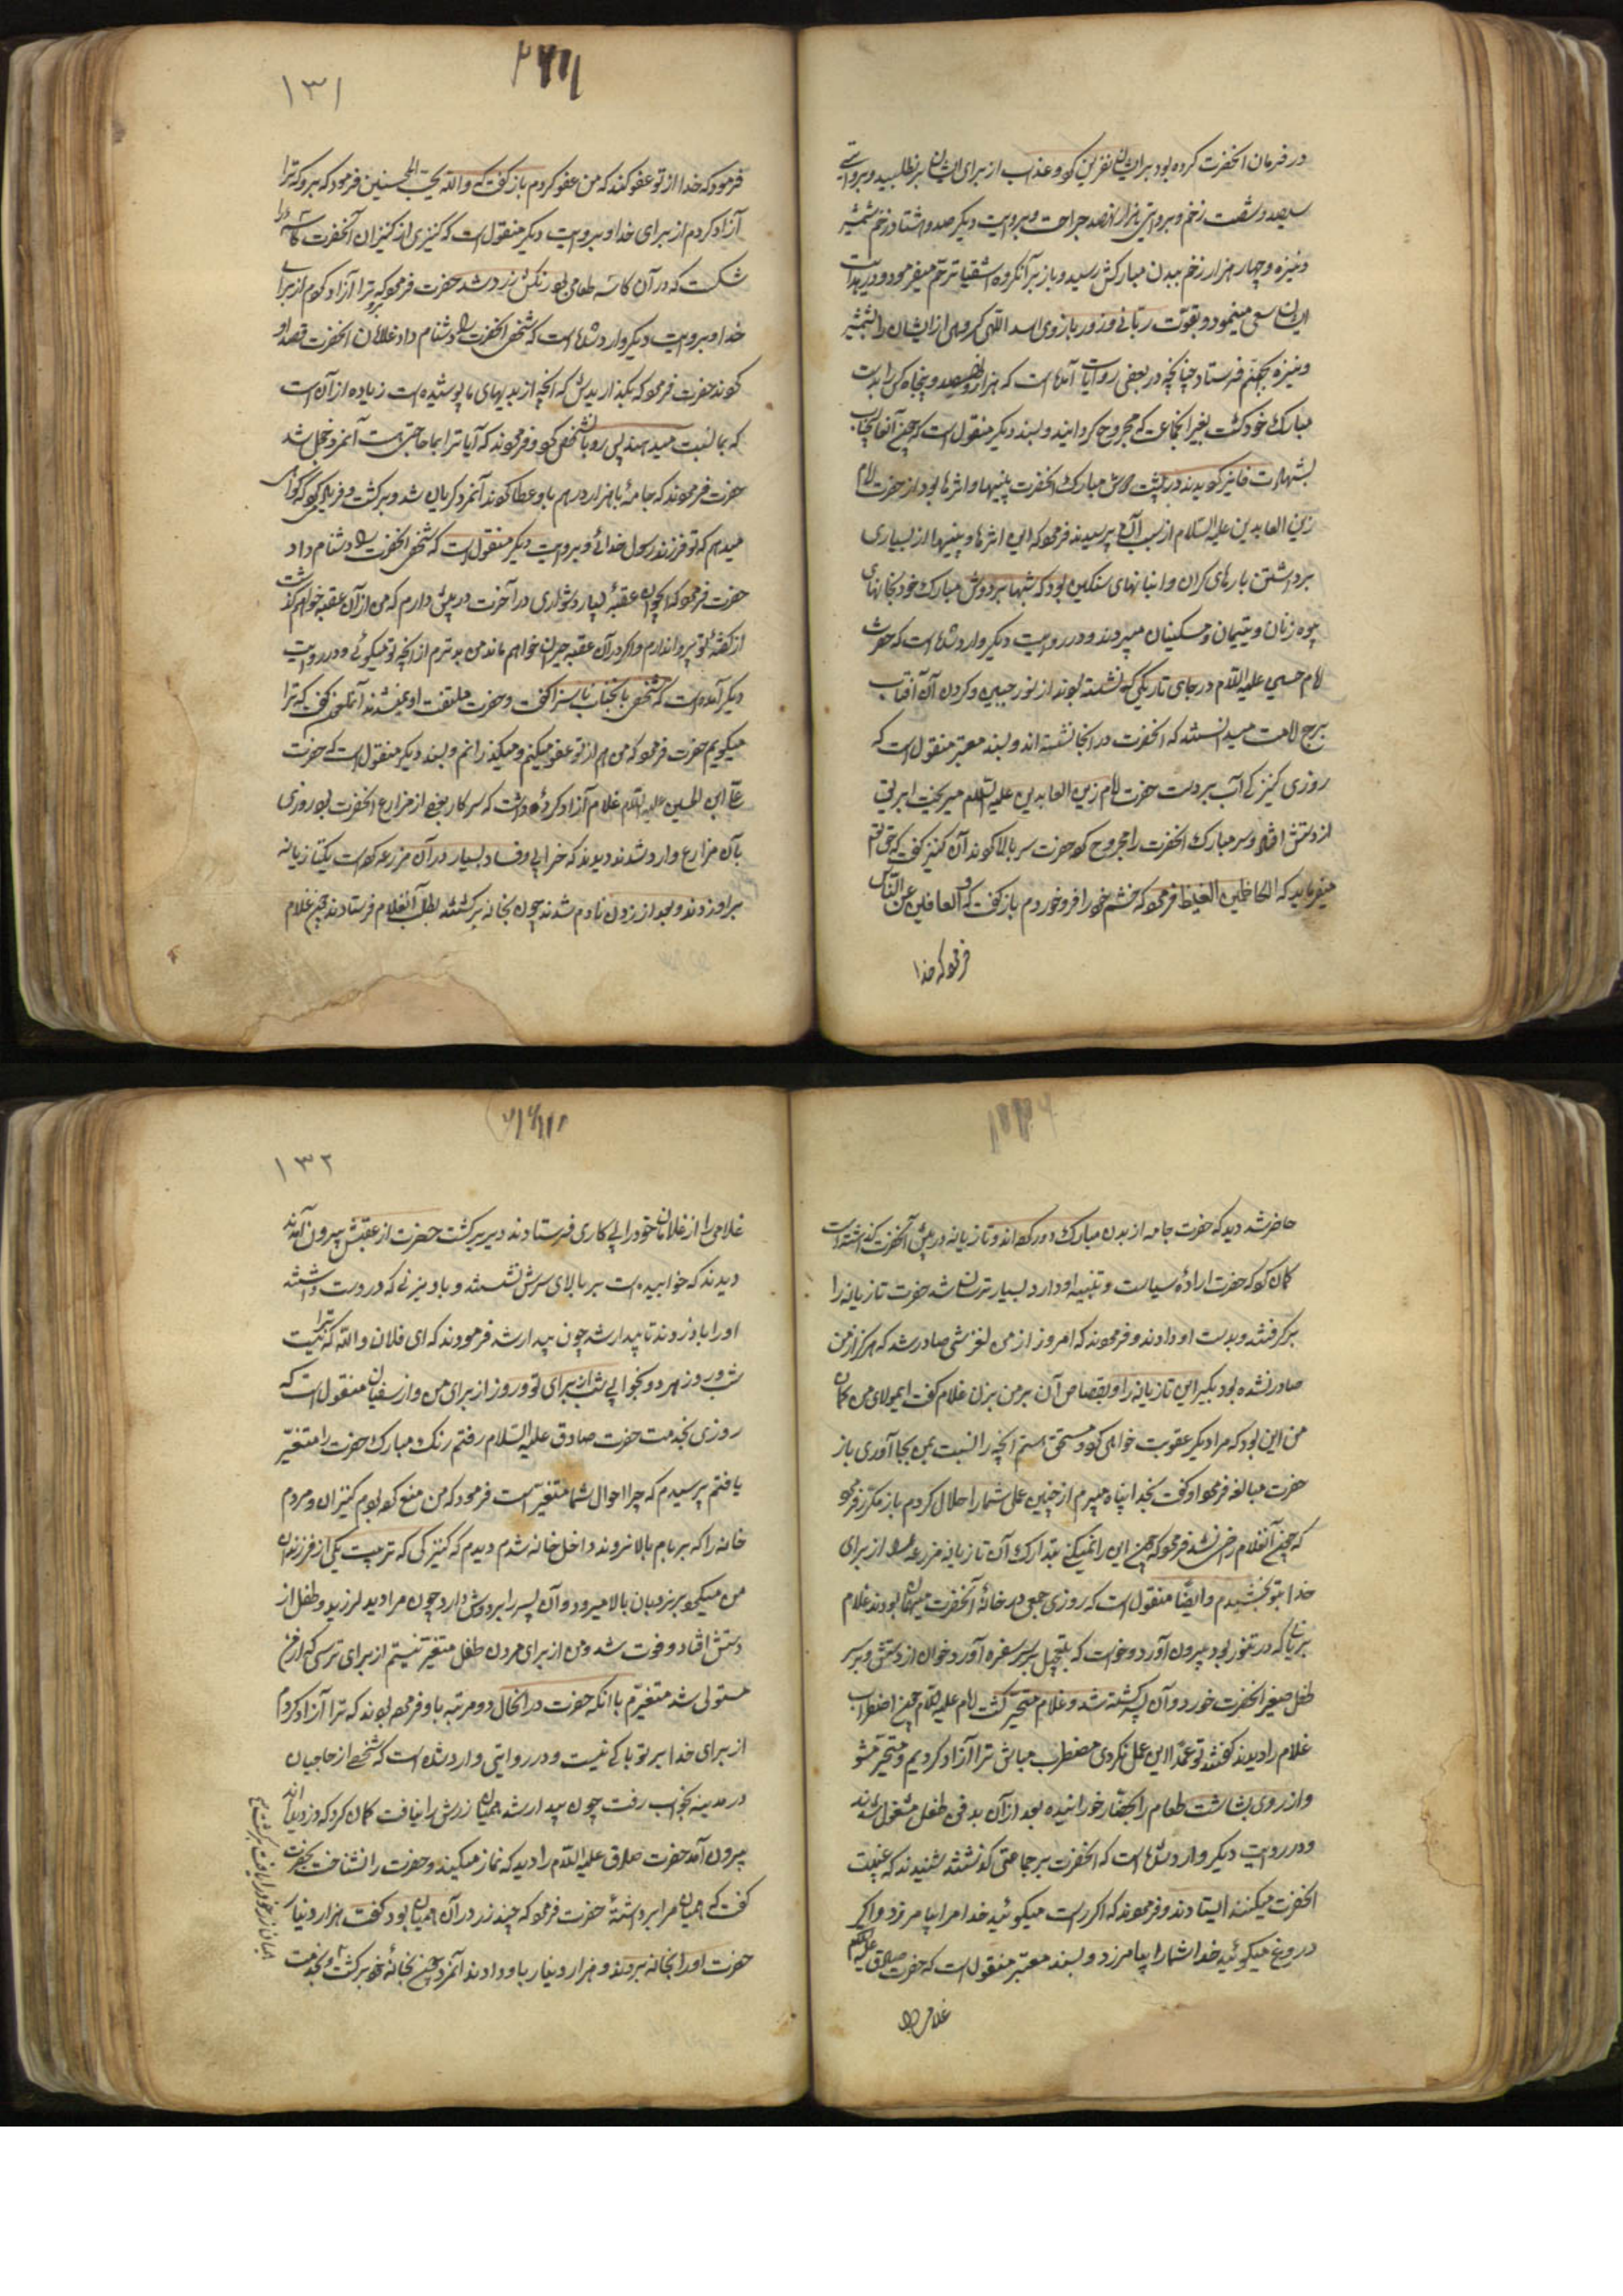 در فرمان آنحضرت کرده بود بر ایشان نفرین کرد و عذاب از برای ایشان بر نطلبید و بروایتی
سیصد و شصت زخم و بروایتی هزار و نهصد جراحت و بروایت دیگر صد و هشتاد زخم شمشیر
و نیزه و چهار هزار زخم ببدن مبارکش رسید و باز بر آنگروه اشقیا ترحم میفرمود و در هدایت
ایشان سعی مینمود و بقوت ربانی و زور بازوی اسد اللهی گروهی از ایشان را بشمشیر
و نیزه بجهنم فرستاد چنانچه در بعضی روایات آمده است که هزار و نهصد و پنجاه کس را بدست
مبارک خود کشت بغیر آنجماعت که مجروح گردانید و بسند دیگر منقول است که چون آنعالیجناب
بشهادت فایز گردیدند در پشت دوش مبارک آنحضرت پینها و اثرها بود از حضرت امام
زین العابدین علیه السلام از سبب آن پرسیدند فرمود که این اثرها و پینها از بسیاری
برداشتن بارهای گران و انبانهای سنگین بود که شبها بر دوش مبارک خود بخانهای
بیوه زنان و یتیمان و مسکینان میبردند و در روایت دیگر وارد شده است که حضرت
امام حسین علیه السلام در جای تاریکی که نشسته بودند از نور جبین و گردن آن آفتاب
برج امامت میدانستند که آنحضرت در آنجا نشسته اند و بسند معتبر منقول است که
روزی کنیزکی آب بر دست حضرت امام زین العابدین علیه السلام میریخت ابریق
از دستش افتاد و سر مبارک آنحضرت را مجروح کرد حضرت سر بالا کردند آن کنیز گفت که حق تعالی
میفرماید که الکاظمین الغیظ فرمود که خشم خود را فرو خوردم باز گفت که و العافین عن الناس
فرمود که خدا
۱۳۱
فرمود که خدا از تو عفو کند که من عفو کردم باز گفت که والله یحب المحسنین فرمود که برو که ترا
آزاد کردم از برای خدا و بروایت دیگر منقول است که کنیزی از کنیزان آنحضرت کاسه را
شکست که در آن کاسه طعامی بود رنگش زرد شد حضرت فرمود که برو ترا آزاد کردم از برای
خدا و بروایت دیگر وارد شده است که شخصی آنحضرت را دشنام داد غلامان آنحضرت قصد او
کردند حضرت فرمود که بگذاریدش که آنچه از بدیهای ما پوشیده است زیاده از آن است
که بما نسبت میدهند پس رو بآنشخص کرد و فرمودند که آیا ترا بما حاجتی هست آنمرد خجل شد
حضرت فرمودند که جامه با هزار درهم باو عطا کردند آنمرد گریان شد و برگشت و فریاد میکرد که گواهی
میدهم که تو فرزند رسول خدائی و بروایت دیگر منقول است که شخصی آنحضرت را دشنام داد
حضرت فرمود که ایجوان عقبه بسیار دشواری در آخرت در پیش دارم که من از آن عقبه خواهم گذشت
از گفته تو پروا ندارم و اگر در آن عقبه حیران خواهم ماند من بدترم از آنچه تو میگوئی و در روایت
دیگر آمده است که شخصی بآنجناب ناسزا گفت و حضرت ملتفت او نمیشدند آنملعون گفت که ترا
میگویم حضرت فرمود که من هم از تو عفو میکنم و میگذرانم و بسند دیگر منقول است که حضرت
علی ابن الحسین علیه السلام غلام آزاد کرده داشت که سرکار بعضی از مزارع آنحضرت بود روزی
بآن مزارع وارد شدند دیدند که خرابی و فساد بسیار در آن مزرعه کرده است یکتازیانه
بر او زدند و بعد از زدن نادم شدند چون بخانه برگشتند بطلب آنغلام فرستادند چون غلام
حاضر شد دید که حضرت جامه از بدن مبارک دور کرده اند و تازیانه در پیش آنحضرت گذاشته است
گمان کرد که حضرت اراده سیاست و تنبیه او دارد بسیار ترسان شد حضرت تازیانه را
برگرفتند و بدست او دادند و فرمودند که امروز از من لغزشی صادر شد که هرگز از من
صادر نشده بود بگیر این تازیانه را و بقصاص آن بر من بزن غلام گفت ایمولای من گمان
من این بود که مرا دیگر عقوبت خواهی کرد و مستحق هستم آنچه را نسبت بمن بجا آوری باز
حضرت مبالغه فرمود او گفت بخدا پناه میبرم از چنین عملی شما را حلال کردم باز مکرر فرمود
که چون آنغلام راضی نشد فرمود که چون این را نمیکنی بتدارک آن تازیانه مزرعه را از برای
خدا بتو بخشیدم و ایضا منقول است که روزی جمعی در خانه آنحضرت میهمان بودند غلام
بریانی که در تنور بود بیرون آورد و خواست که بتعجیل بر سر سفره آورد خوان از دستش و بر سر
طفل صغیر آنحضرت خورد و آن پسر کشته شد و غلام متحیر گشت امام علیه السلام چون اضطراب
غلام را دیدند گفتند تو عمدا این عمل نکردی مضطرب مباش ترا آزاد کردیم و متحیر مشو
و از روی بشاشت طعام را بحضار خورانیده بعد از آن بدفن طفل مشغول شدند
و در روایت دیگر وارد شده است که آنحضرت بر جماعتی گذشتند شنیدند که غیبت
آنحضرت میکنند ایستادند و فرمودند که اگر راست میگوئید خدا مرا بیامرزد و اگر
دروغ میگوئید خدا شما را بیامرزد و بسند معتبر منقول است که حضرت صادق علیه السلام
غلامی را
۱۳۲
غلامی را از غلامان خود را پی کاری فرستادند دیر برگشت حضرت از عقبش بیرون آمدند
دیدند که خوابیده است بر بالای سرش نشستند و بادبزنی که در دست داشتند
او را باد زدند تا بیدار شد چون بیدار شد فرمودند که ای فلان والله که ترا نیست
شب و روز هر دو بخوابی شب از برای تو و روز از برای من و از سفیان منقول است که
روزی بخدمت حضرت صادق علیه السلام رفتم رنگ مبارک حضرت را متغیر
یافتم پرسیدم که چرا احوال شما متغیر است فرمود که من منع کرده بودم کنیزان و مردم
خانه را که بر بام بالا نروند داخل خانه شدم دیدم که کنیزکی که تربیت یکی از فرزندان
من میکرد بر نردبان بالا میرود و آن پسر را بر دوش دارد چون مرا دید لرزید و طفل از
دستش افتاد و فوت شد و من از برای مردن طفل متغیر نیستم از برای ترسی که از من
مستولی شد متغیرم با آنکه حضرت در آنحال دو مرتبه باو فرموده بودند که ترا آزاد کردم
از برای خدا بر تو باکی نیست و در روایتی وارد شده است که شخصی از حاجیان
در مدینه بخواب رفت چون بیدار شد همیان زرش را نیافت گمان کرد که دزدیده اند
بیرون آمد حضرت صادق علیه السلام را دید که نماز میکنند و حضرت را نشناخت بحضرت
گفت که همیان مرا برداشته حضرت فرمود که چند زر در آن همیان بود گفت هزار دینار
حضرت او را بخانه بردند و هزار دینار باو دادند آنمرد چون بخانه خود برگشت و بخدمت
همیان زر خود را یافت برگشت